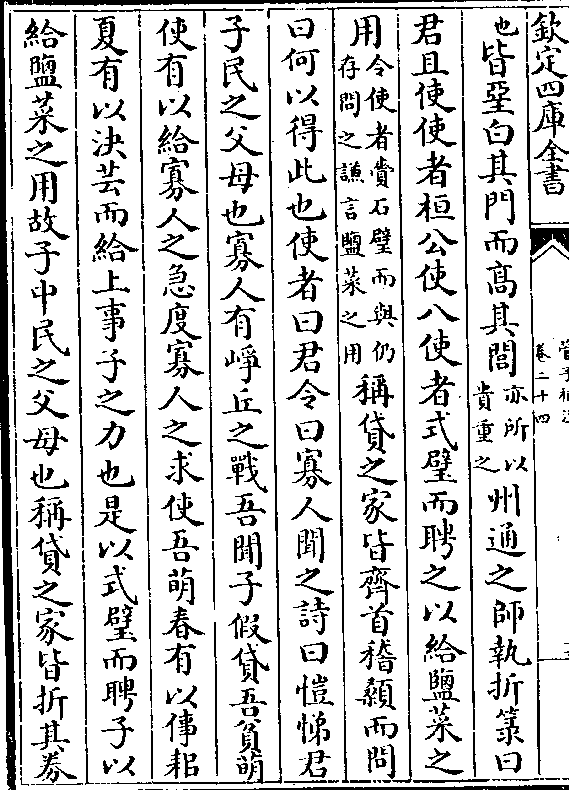 欽定四庫全書
管子補注
卷二十四
也皆堊白其門而髙其閭亦所以貴重之州通之師執折箓曰
君且使使者桓公使八使者式璧而聘之以給鹽菜之
用令使者賞石璧而與仍存問之謙言鹽菜之用稱貸之家皆齊首稽顙而問
曰何以得此也使者曰君令曰寡人聞之詩曰愷悌君
子民之父母也寡人有崢丘之戰吾聞子假貸吾貧萌
使有以給寡人之急度寡人之求使吾萌春有以倳耜
夏有以決芸而給上事子之力也是以式璧而聘子以
給鹽菜之用故子中民之父母也稱貸之家皆折其券